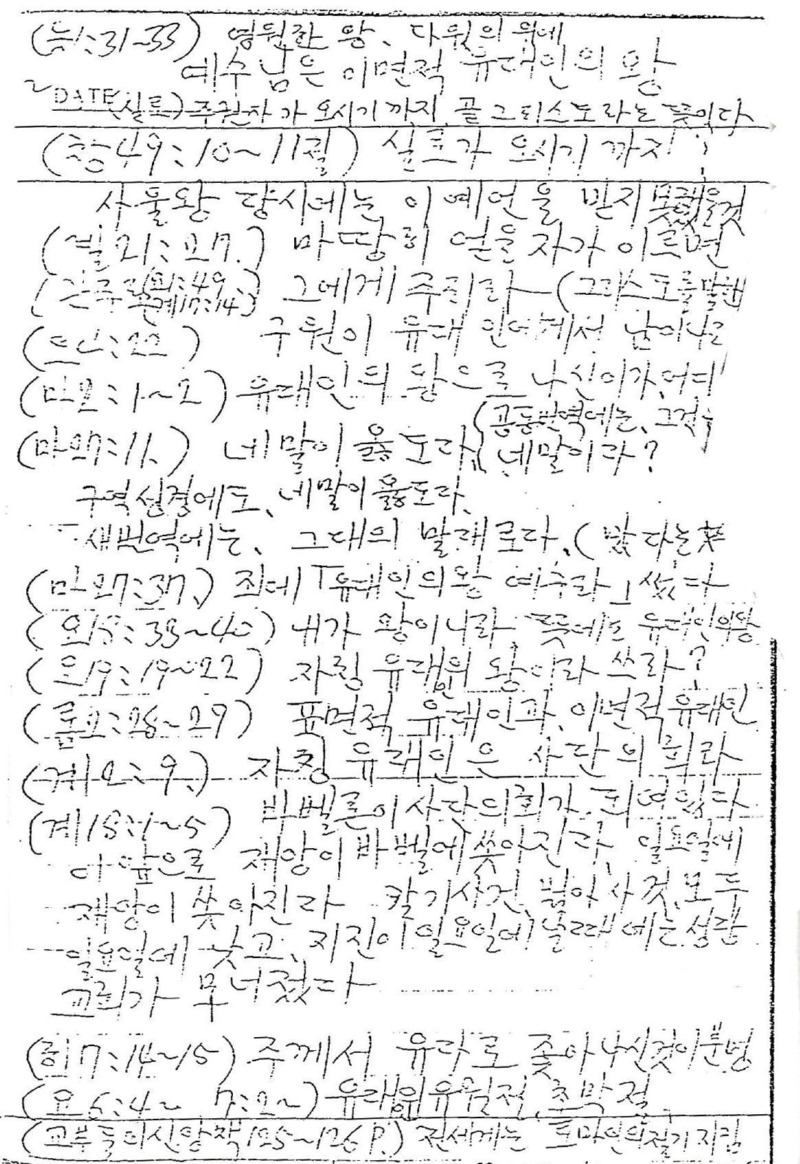 (눅1:31~33) 영원한 왕、다윗의 위에
예수님은 이면적 유대인의 왕
~DATE (실로) 주권자가 오시기까지、곧 그리스도라는 뜻이다
(창49:10~11절) 실로가 오시기 까지
사울왕 당시에는 이 예언을 받지 못했을것
(겔21:27.) 마땅히 얻을 자가 이르면
그에게 주리라 (그리스도를 말함
(요4:22) 구원이 유대인에게서 남이니라
(마2:1~2) 유대인의 왕으로 나신이가、어데
(마27:11.) 네 말이 옳도다 (공동번역에는、그것은 네말이다?
구역성경에도、네 말이 옳도다、
새번역에는、그대의 말대로다、( 맞다는
(마27:37.) 죄에「유대인의 왕 예수라」썼다
(요18:33~40) 내가 왕이니라 뜻에도 유대인의왕
(요19:19~22) 자칭 유대인의 왕이라 쓰라?
(롬2:28~29) 표면적 유대인과、이면적 유대인
(계2:9.) 자칭 유대인은 사단의 회라
(계18:1~5) 바벨론이 사단의회가 되여있다
이 앞으로 재앙이 바벨에 쏟아진다、일요일에
재앙이 쏟아진다 칼기사건 모두
일요일에 낫고、지진이 일요일에 날때에는 성람
교회가 무너졌다
(히7:14~15) 주께서 유다로 좇아 나신것이 분명
(요6:4~ 7:2~) 유대인의 유월절、초막절
(교부들의신앙책 125~126P.) 전세계는 로마인의 절기 지킴